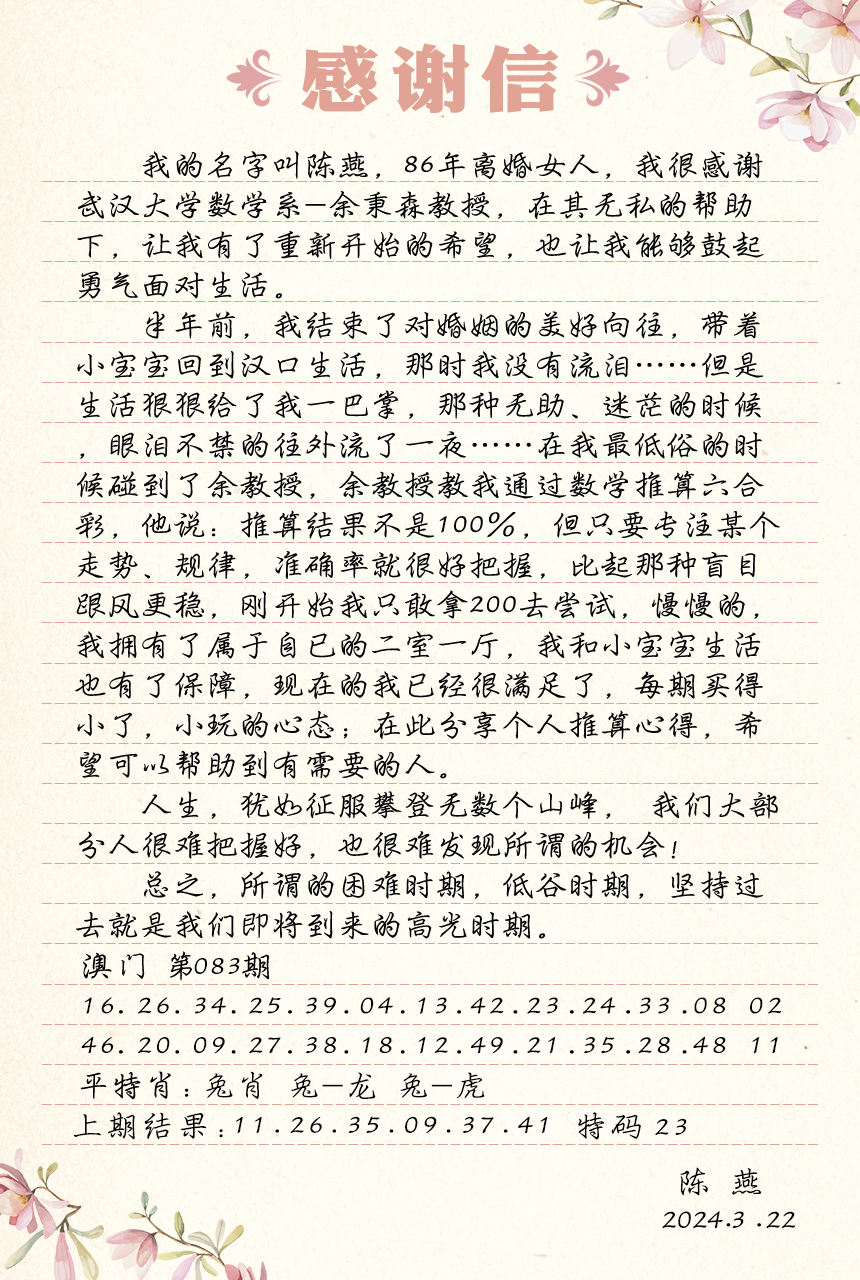 感谢信
我的名字叫陈燕，86年离婚女人，我很感谢
武汉大学数学系—余秉森教授，在其无私的帮助
下，让我有了重新开始的希望，也让我能够鼓起
勇气面对生活。
半年前，我结束了对婚姻的美好向往，带着
小宝宝回到汉口生活，那时我没有流泪……但是
生活狠狠给了我一巴掌，那种无助、迷茫的时候
，眼泪不禁的往外流了一夜……在我最低俗的时
候碰到了余教授，余教授教我通过数学推算六合
彩，他说：推算结果不是100%，但只要专注某个
走势、规律，准确率就很好把握，比起那种盲目
跟风更稳，刚开始我只敢拿200去尝试，慢慢的，
我拥有了属于自己的二室一厅，我和小宝宝生活
也有了保障，现在的我已经很满足了，每期买得
小了，小玩的心态；在此分享个人推算心得，希
望可以帮助到有需要的人。
人生，犹如征服攀登无数个山峰， 我们大部
分人很难把握好，也很难发现所谓的机会！
总之，所谓的困难时期，低谷时期，坚持过
去就是我们即将到来的高光时期。
澳门 第083期
16.26.34.25.39.04.13.42.23.24.33.08 02
46.20.09.27.38.18.12.49.21.35.28.48 11
平特肖：兔肖 兔—龙 兔—虎
上期结果：11.26.35.09.37.41 特码 23
陈 燕
2024.3.22